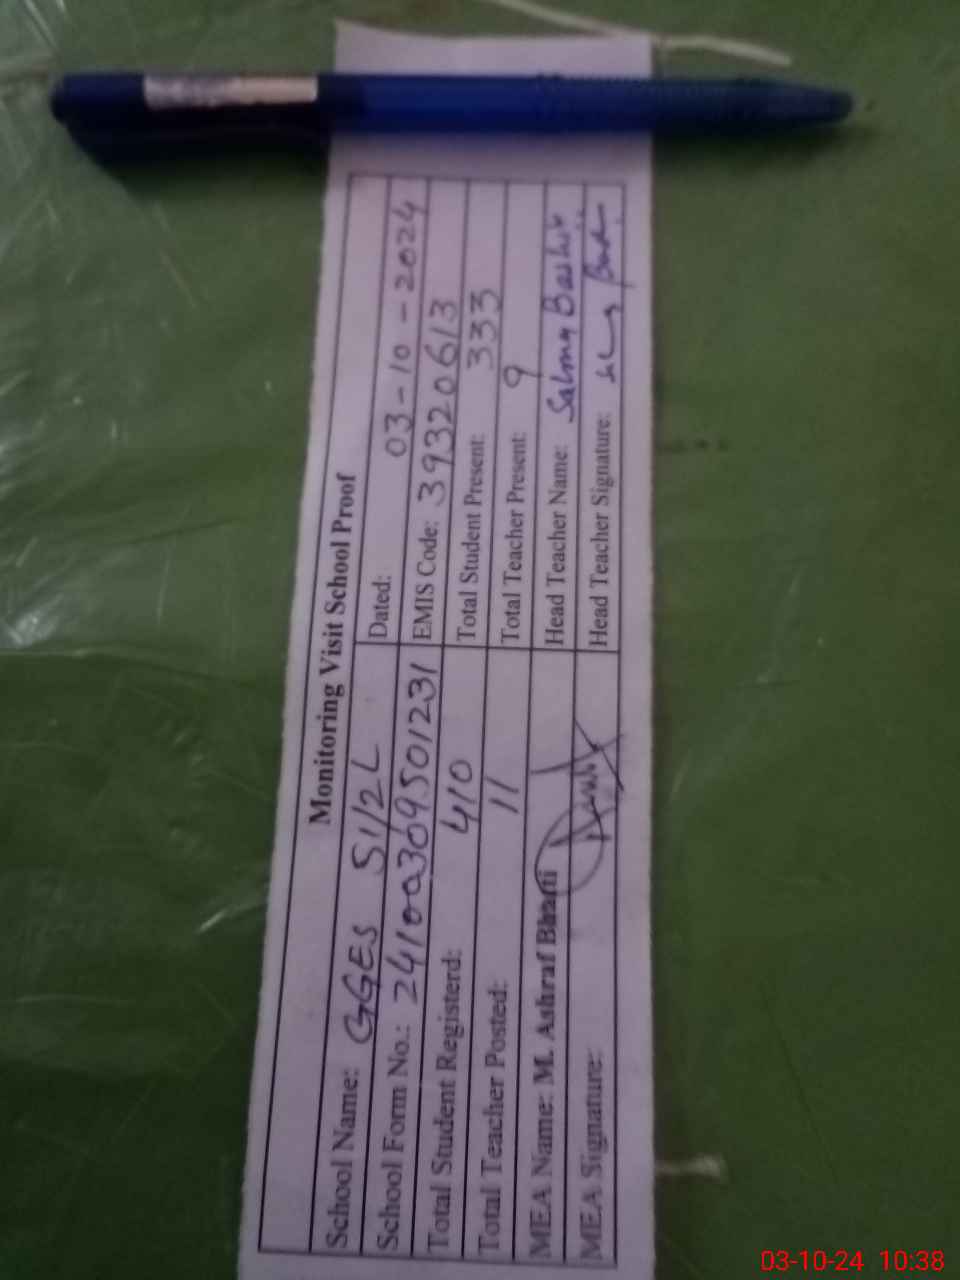 Monitoring Visit School Proof
School Name: GGES 51/2L Dated: 03-10-2024
School Form No.: 2410a309501231 EMIS Code: 39320613
Total Student Registerd: 410 Total Student Present: 333
Total Teacher Posted: 11 Total Teacher Present: 9
MEA Name: M. Ashraf Bhatti Head Teacher Name: Salma Bashir
MEA Signature: Head Teacher Signature:
03-10-24 10:38